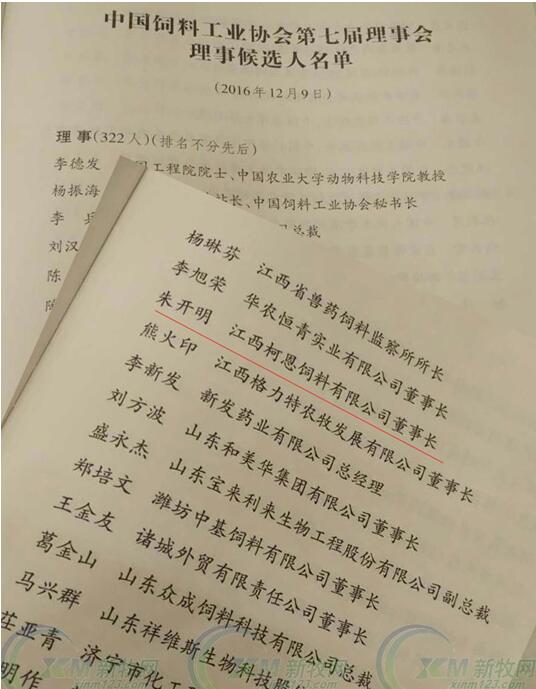 中国饲料工业协会第七届理事会
理事候选人名单
(2016年12月9日)
理事(322人)(排名不分先后)
李德发 国工程院院士、中国农业大学动物科技学院教授
杨振海 站长、中国饲料工业协会秘书长
李 总裁
刘汉
陈
陈
杨琳芬 江西省兽药饲料监察所所长
李旭荣 华农恒青实业有限公司董事长
朱开明 江西柯恩饲料有限公司董事长
熊火印 江西格力特农牧发展有限公司董事长
李新发 新发药业有限公司总经理
刘方波 山东和美华集团有限公司董事长
盛永杰 山东宝来利来生物工程股份有限公司副总裁
郑培文 潍坊中基饲料有限公司董事长
王金友 诸城外贸有限责任公司董事长
葛金山 山东众成饲料科技有限公司总裁
马兴群 山东祥维斯生物科技股份
庄亚青 济宁市化工
明作
XM 新牧网
xinm123.com
XM 新牧网
xinm123.com